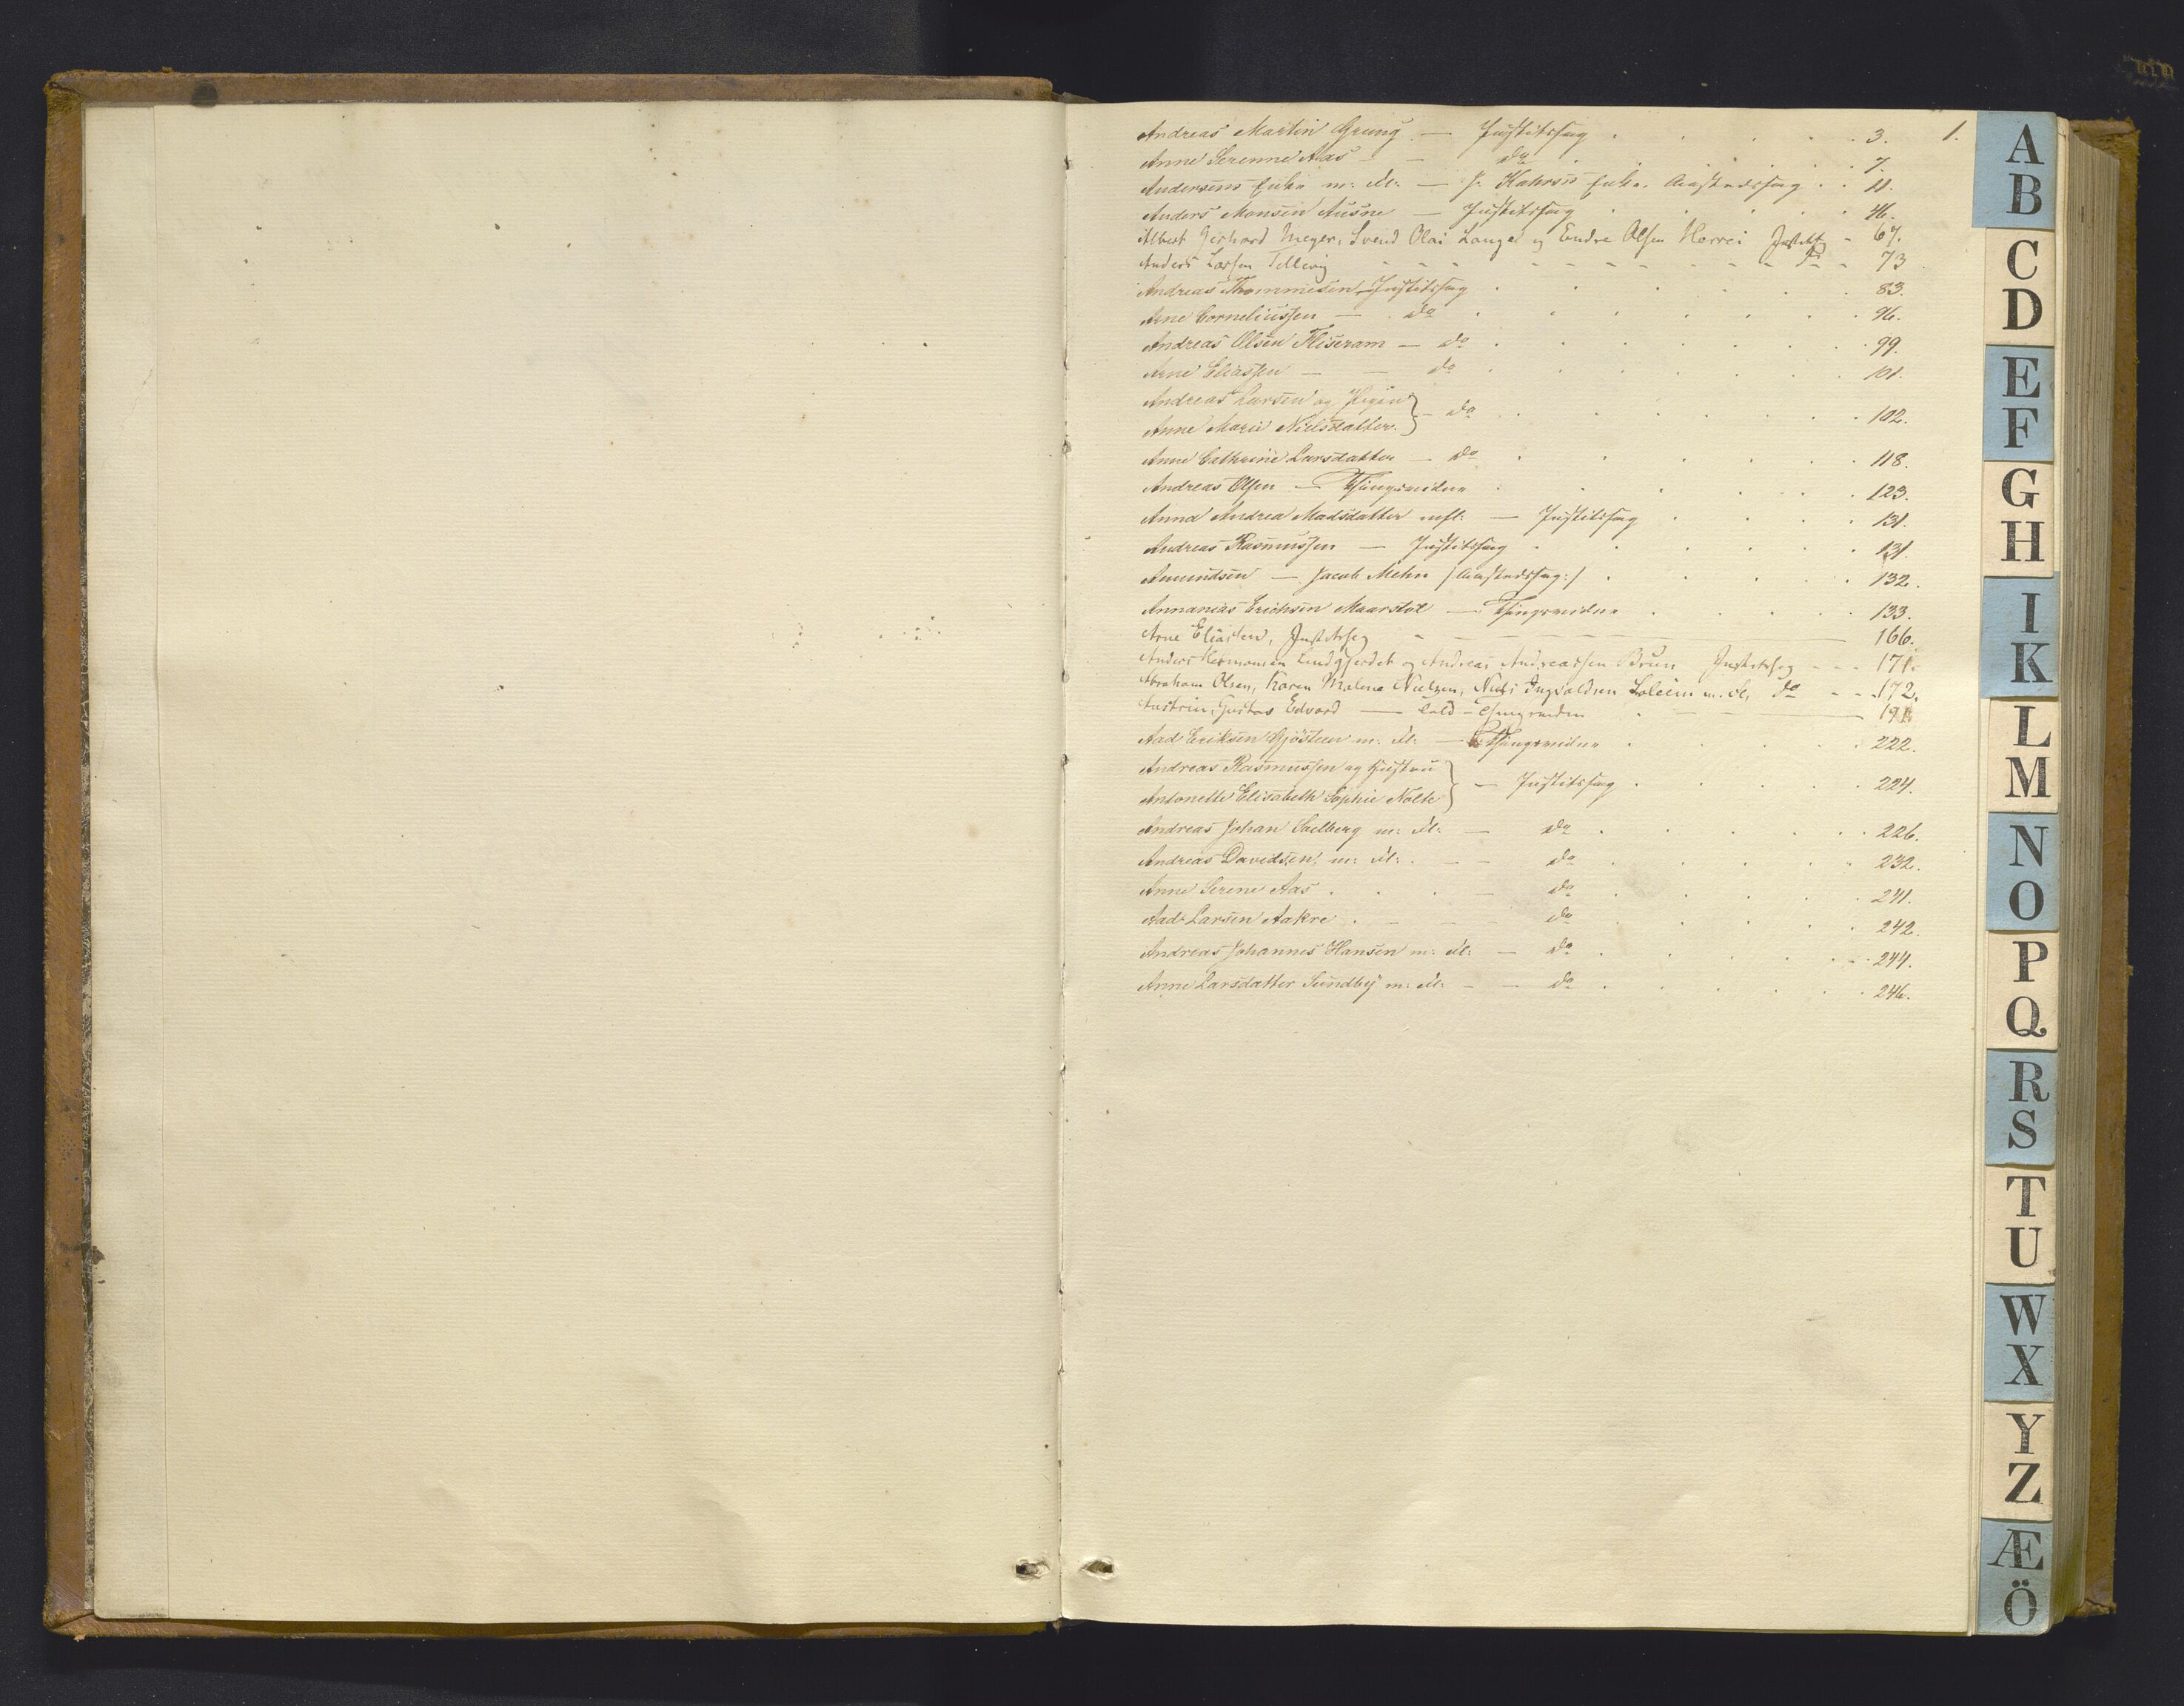 1.
Andreas Martin Grung — Justitssag 3.
Anne Serenne Aas — do 7.
Andersens Enke m: fl: — J. Kahrsis Enke. Aastedssag 11.
Anders Monsen Ausne — Justitssag 46.
Albert Gerhard Meyer, Svend Olai Lange og Endre Olsen Herrei Justitssg 67.
Anders Larsen Tellevig do 73
Andreas Thommesen Justitssag 83.
Arne Corneliussen — do 96.
Andreas Olsen Fliseram — do 99.
Arne Eliassen — do 101.
Andreas Larsen og Pigen
Anne Marie Nielsdatter } do 102.
Anne Cathrine Larsdatter — do 118.
Andreas Olsen — Thingsvidne 123.
Anna Andrea Madsdatter — Justitssag 131.
Andreas Rasmussen — Justitssag 131.
Amundsen — Jacob Mehn /: Aastedssag :/ 132.
Annanias Erichsen Maarstøl — Thingsvidne 133.
Arne Eliassen, Justitssag 166.
Anders Hermansen Lindgjerdet og Andreas Andreassen Brun Justitssag 171.
Abraham Olsen, Karen Malene Nielsen, Niels Ingvaldsen Soleim m. fl. do 172.
Gustav Edvard — Thingsvidne
Aad Eriksen Gjösteen m: fl: — Thingsvidne 222.
Andreas Rasmussen og Hustru
Antonette Elisabeth Sophie Nolte } — Justitssag 224.
Andreas Johan Saelberg m: fl: — do 226.
Andreas Davidsen, m: fl: — do 232.
Anne Serene Aas — do 241.
Aad Larsen Aakre — do 242.
Andreas Johannes Hansen m: fl: — do 244.
Anne Larsdatter Sundby m: fl: — do 246.
A
B
C
D
E
F
G
H
I
K
L
M
N
O
P
Q
R
S
T
U
W
X
Y
Z
Æ
Ö